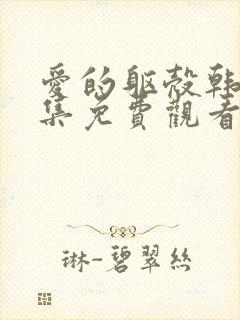 愛的軀殼韓
集免費觀看
琳-碧翠絲